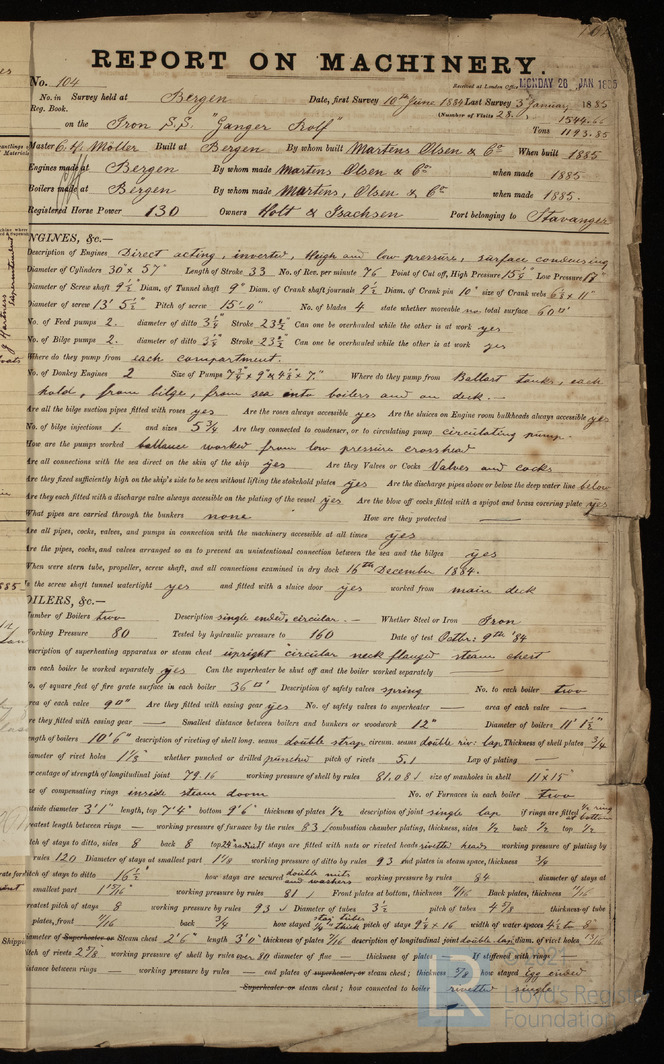 REPORT ON MACHINERY.
No. 104
Received at London Office MONDAY 26 JAN 1885
No. in Survey held at Bergen Date, first Survey 10th June 1884 Last Survey 3 January 1885
Reg. Book.
(Number of Visits 23
on the Iron S.S. "Ganger Rolf" Tons 1193.85
Master Möller Built at Bergen By whom built Martens Olsen & Co When built 1885
Engines made at Bergen By whom made Martens Olsen & Co when made 1885
Boilers made at Bergen By whom made Martens, Olsen & Co when made 1885.
Registered Horse Power 130 Owners Holt & Isachsen Port belonging to Stavanger
NGINES, &c.—
Description of Engines Direct acting, inverted, High and low pressure, surface condensing
Diameter of Cylinders 30" x 57" Length of Stroke 33 No. of Rev. per minute 76 Point of Cut off, High Pressure Low Pressure
Diameter of Screw shaft 9½" Diam. of Tunnel shaft 9" Diam. of Crank shaft journals 9½ Diam. of Crank pin 10" size of Crank webs 6½ x 11"
Diameter of screw 13' 5½" Pitch of screw 15'-0" No. of blades 4 state whether moveable no. total surface 60□'
No. of Feed pumps 2. diameter of ditto 3½" Stroke 23½" Can one be overhauled while the other is at work yes
No. of Bilge pumps 2. diameter of ditto 3½" Stroke 23½" Can one be overhauled while the other is at work yes
Where do they pump from each compartment.
No. of Donkey Engines 2 Size of Pumps Where do they pump from Ballast tanks, each
hold, from bilge, from sea onto boilers and on deck.
Are all the bilge suction pipes fitted with roses yes Are the roses always accessible yes Are the sluices on Engine room bulkheads always accessible yes
No. of bilge injections 1. and sizes 5¾ Are they connected to condenser, or to circulating pump circulating pump.
How are the pumps worked ballance worked from low pressure crosshead
Are all connections with the sea direct on the skin of the ship yes Are they Valves or Cocks Valves and cocks
Are they fixed sufficiently high on the ship's side to be seen without lifting the stokehold plates yes Are the discharge pipes above or below the deep water line below
Are they each fitted with a discharge valve always accessible on the plating of the vessel yes Are the blow off cocks fitted with a spigot and brass covering plate yes
What pipes are carried through the bunkers none How are they protected —
Are all pipes, cocks, valves, and pumps in connection with the machinery accessible at all times yes
Are the pipes, cocks, and valves arranged so as to prevent an unintentional connection between the sea and the bilges yes
When were stern tube, propeller, screw shaft, and all connections examined in dry dock 16th December 1884.
Is the screw shaft tunnel watertight yes and fitted with a sluice door yes worked from main deck
OILERS, &c.—
Number of Boilers two Description single ended, circular. — Whether Steel or Iron Iron
Working Pressure 80 Tested by hydraulic pressure to 160 Date of test Octbr: 9th '84
Description of superheating apparatus or steam chest upright circular neck flanged steam chest
Can each boiler be worked separately yes Can the superheater be shut off and the boiler worked separately —
No. of square feet of fire grate surface in each boiler 36□' Description of safety valves spring No. to each boiler two
Area of each valve 9□" Are they fitted with easing gear yes No. of safety valves to superheater — area of each valve —
Are they fitted with easing gear — Smallest distance between boilers and bunkers or woodwork 12" Diameter of boilers 11' 1½"
Length of boilers 10' 6" description of riveting of shell long. seams double strap circum. seams double riv: lap Thickness of shell plates ¾
Diameter of rivet holes 1⅛" whether punched or drilled punched pitch of rivets 5.1 Lap of plating —
Percentage of strength of longitudinal joint 79.16 working pressure of shell by rules 81.081 size of manholes in shell 11 x 15"
size of compensating rings inside steam doom No. of Furnaces in each boiler two
outside diameter 3' 1" length, top 7' 4" bottom 9' 6" thickness of plates ½ description of joint single lap if rings are fitted ½ ring at bottom
greatest length between rings — working pressure of furnace by the rules 83 combustion chamber plating, thickness, sides ½ back ½ top ½
pitch of stays to ditto, sides 8 back 8 top If stays are fitted with nuts or riveted heads rivetted heads working pressure of plating by
rules 120 Diameter of stays at smallest part 1⅛ working pressure of ditto by rules 93 end plates in steam space, thickness ¾
pitch of stays to ditto 16½" how stays are secured double nuts and washers working pressure by rules 84 diameter of stays at
smallest part 1 15/16" working pressure by rules 81 Front plates at bottom, thickness 11/16 Back plates, thickness
greatest pitch of stays 8 working pressure by rules 93 Diameter of tubes 3½ pitch of tubes 4⅝ thickness of tube
plates, front 11/16 back ¾ how stayed stay tubes ¼" thick pitch of stays 9½ x 16 width of water spaces
Diameter of Superheater or Steam chest 2' 6" length 3' 0" thickness of plates 7/16 description of longitudinal joint double lap diam. of rivet holes 13/16
pitch of rivets 2⅝ working pressure of shell by rules over 80 diameter of flue — thickness of plates — If stiffened with rings —
distance between rings — working pressure by rules — end plates of superheater, or steam chest; thickness ⅝ how stayed egg ended
Superheater or steam chest; how connected to boiler rivetted single
© 2021
LR
Lloyd's Register
Foundation